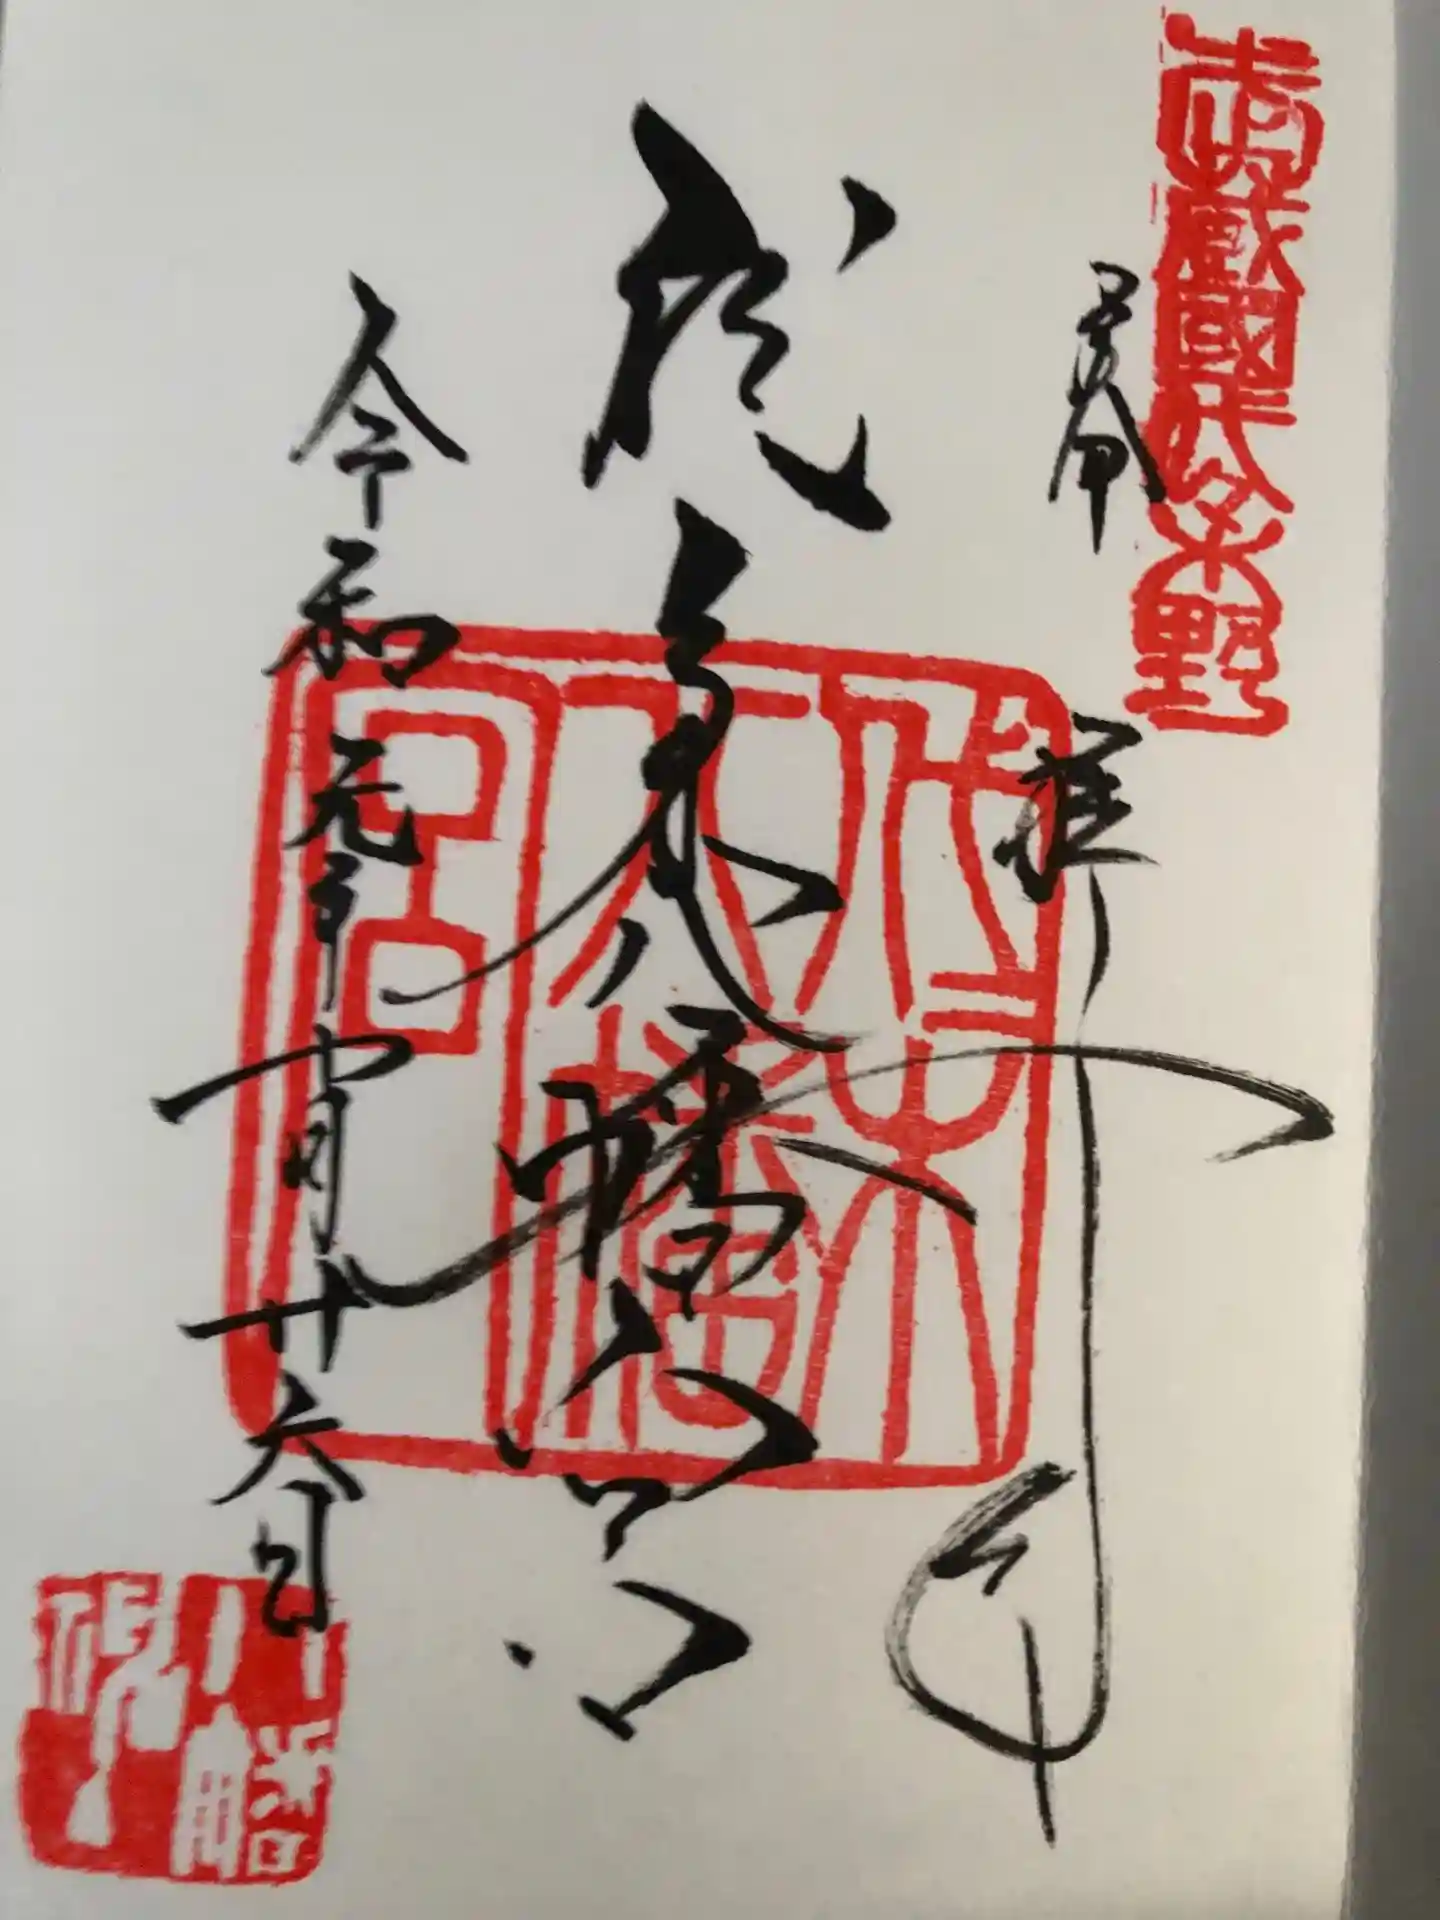 武蔵國代々木野
奉拝
代々木八幡宮
代々木
八幡
宮
令和元年十月廿六日